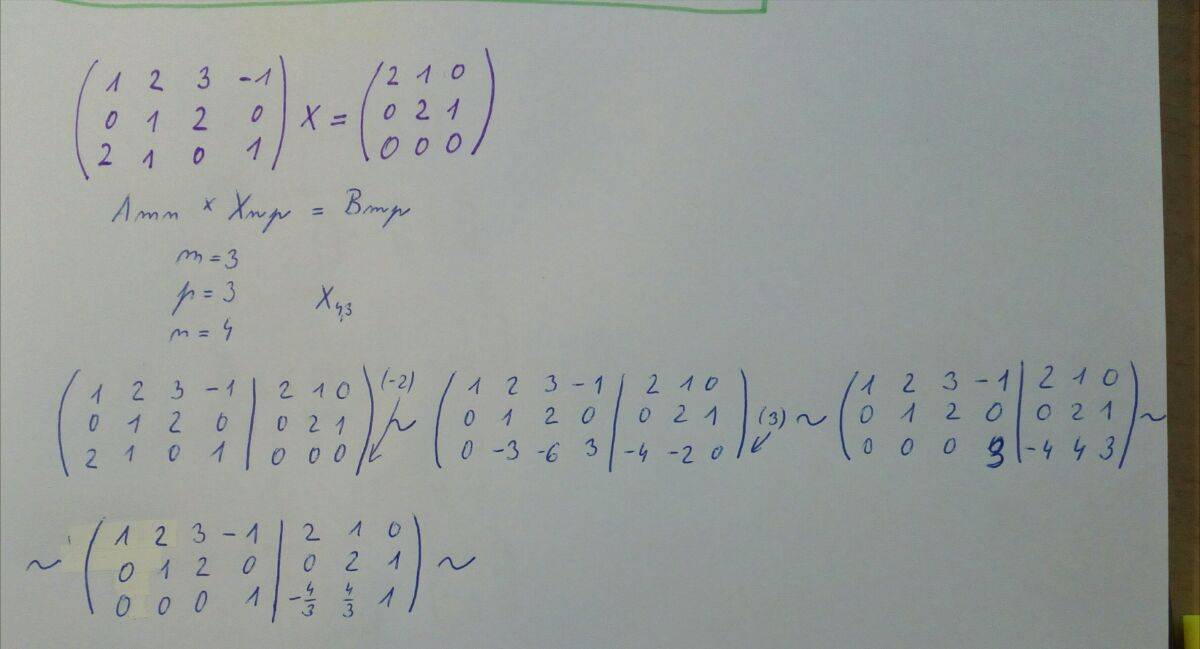 ( 1 2 3 -1 ; 0 1 2 0 ; 2 1 0 1 ) X = ( 2 1 0 ; 0 2 1 ; 0 0 0 )
Amn × Xnp = Bmp
m = 3
p = 3 X4,3
n = 4
( 1 2 3 -1 | 2 1 0 ; 0 1 2 0 | 0 2 1 ; 2 1 0 1 | 0 0 0 ) (-2) ~ ( 1 2 3 -1 | 2 1 0 ; 0 1 2 0 | 0 2 1 ; 0 -3 -6 3 | -4 -2 0 ) (3) ~ ( 1 2 3 -1 | 2 1 0 ; 0 1 2 0 | 0 2 1 ; 0 0 0 3 | -4 4 3 ) ~
~ ( 1 2 3 -1 | 2 1 0 ; 0 1 2 0 | 0 2 1 ; 0 0 0 1 | -4/3 4/3 1 ) ~